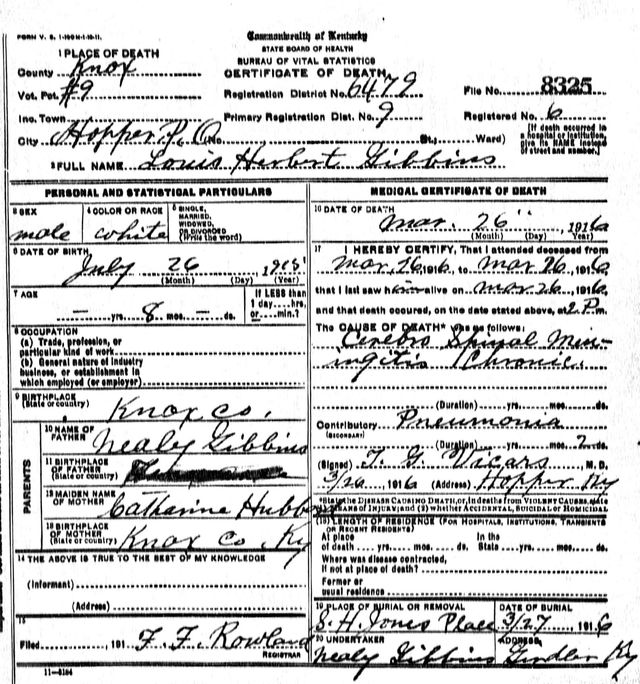 FORM V. S. 1-
Commonwealth of Kentucky
STATE BOARD OF HEALTH
BUREAU OF VITAL STATISTICS
CERTIFICATE OF DEATH
1 PLACE OF DEATH
County Knox
Vot. Pct. #9
Registration District No. 6479
File No. 8325
Inc. Town
Primary Registration Dist. No. 9
Registered No. 6
City Hopper P.O. (No. St.; Ward)
(If death occurred in a hospital or institution, give its NAME instead of street and number.)
2 FULL NAME Louis Herbert Gibbins
PERSONAL AND STATISTICAL PARTICULARS
3 SEX male
4 COLOR OR RACE white
5 SINGLE, MARRIED, WIDOWED, OR DIVORCED (Write the word)
6 DATE OF BIRTH
July 26 1915
(Month) (Day) (Year)
7 AGE
— yrs. 8 mos. — ds.
If LESS than 1 day....hrs. or.....min.?
8 OCCUPATION
(a) Trade, profession, or particular kind of work
(b) General nature of industry business, or establishment in which employed (or employer)
9 BIRTHPLACE (State or country) Knox Co.
PARENTS
10 NAME OF FATHER Nealy Gibbins
11 BIRTHPLACE OF FATHER (State or country)
12 MAIDEN NAME OF MOTHER Catharine
13 BIRTHPLACE OF MOTHER (State or country) Knox Co. Ky
14 THE ABOVE IS TRUE TO THE BEST OF MY KNOWLEDGE
(Informant)
(Address)
15
Filed 191 F. F. Rowland
REGISTRAR
11—3184
MEDICAL CERTIFICATE OF DEATH
16 DATE OF DEATH
Mar. 26" 1916
(Month) (Day) (Year)
17 I HEREBY CERTIFY, That I attended deceased from
Mar, 26 1916, to Mar 26, 1916
that I last saw him alive on Mar 26, 1916
and that death occured, on the date stated above, at 2 P.m.
The CAUSE OF DEATH* was as follows:
Cerebro Spinal Men-
ingitis Chronic.
(Duration) yrs. mos. ds.
Contributory (SECONDARY) Pneumonia
(Duration) yrs. mos. 2 ds.
(Signed) T. G. Vicars M. D.
3/26 1916 (Address) Hopper Ky
*State the DISEASE CAUSING DEATH, or, in deaths from VIOLENT CAUSES, state MEANS OF INJURY; and (2) whether ACCIDENTAL, SUICIDAL or HOMICIDAL
18 LENGTH OF RESIDENCE (FOR HOSPITALS, INSTITUTIONS, TRANSIENTS OR RECENT RESIDENTS)
At place of death yrs. mos. ds. In the State yrs. mos. ds.
Where was disease contracted, if not at place of death?
Former or usual residence
19 PLACE OF BURIAL OR REMOVAL S. H. Jones Place
DATE OF BURIAL 3/27 1916
20 UNDERTAKER Nealy Gibbins
ADDRESS Girdler Ky